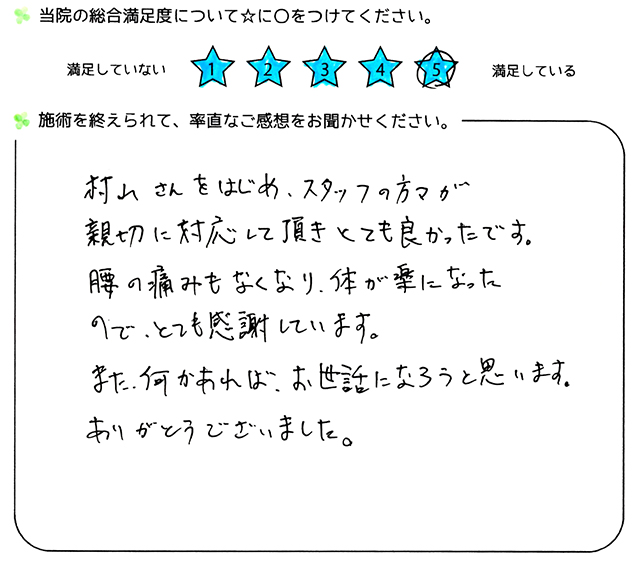 当院の総合満足度について☆に○をつけてください。
満足していない 1 2 3 4 5 満足している
施術を終えられて、率直なご感想をお聞かせください。
村山さんをはじめ、スタッフの方々が
親切に対応して頂きとても良かったです。
腰の痛みもなくなり、体が楽になった
ので、とても感謝しています。
また、何かあれば、お世話になろうと思います。
ありがとうございました。